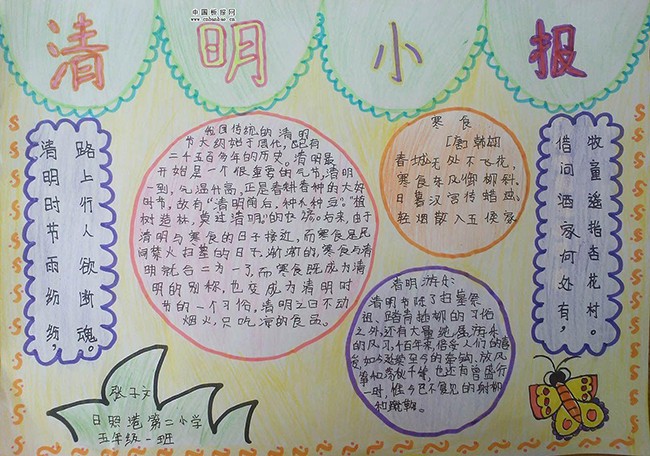 中国板报网
www.cnbanbao.cn
清明小报
清明时节雨纷纷，
路上行人欲断魂。
我国传统的清明
节大约始于周代，已有
二千五百多年的历史。清明最
开始是一个很重要的节气，清明
一到，气温升高，正是春耕春种的大好
时节，故有“清明前后，种瓜种豆。”“植
树造林，莫过清明”的农谚。后来，由于
清明与寒食的日子接近，而寒食是民
间禁火扫墓的日子，渐渐的，寒食与清
明就合二为一了，而寒食既成为清
明的别称，也变成为清明时
节的一个习俗，清明之日不动
烟火，只吃凉的食品。
寒食
[唐]韩翃
春城无处不飞花，
寒食东风御柳斜。
日暮汉宫传蜡烛，
轻烟散入五侯家
借问酒家何处有，
牧童遥指杏花村。
清明游乐
清明节除了扫墓祭
祖、踏青插柳的习俗
之外，还有大量
的风习，千百年来，倍受人们的喜
爱，如今延续至今的牵钩、放风
筝和荡秋千等，也还有曾盛行
一时，惟今已不复见的射柳
和蹴鞠。
张子文
日照港第二小学
五年级一班